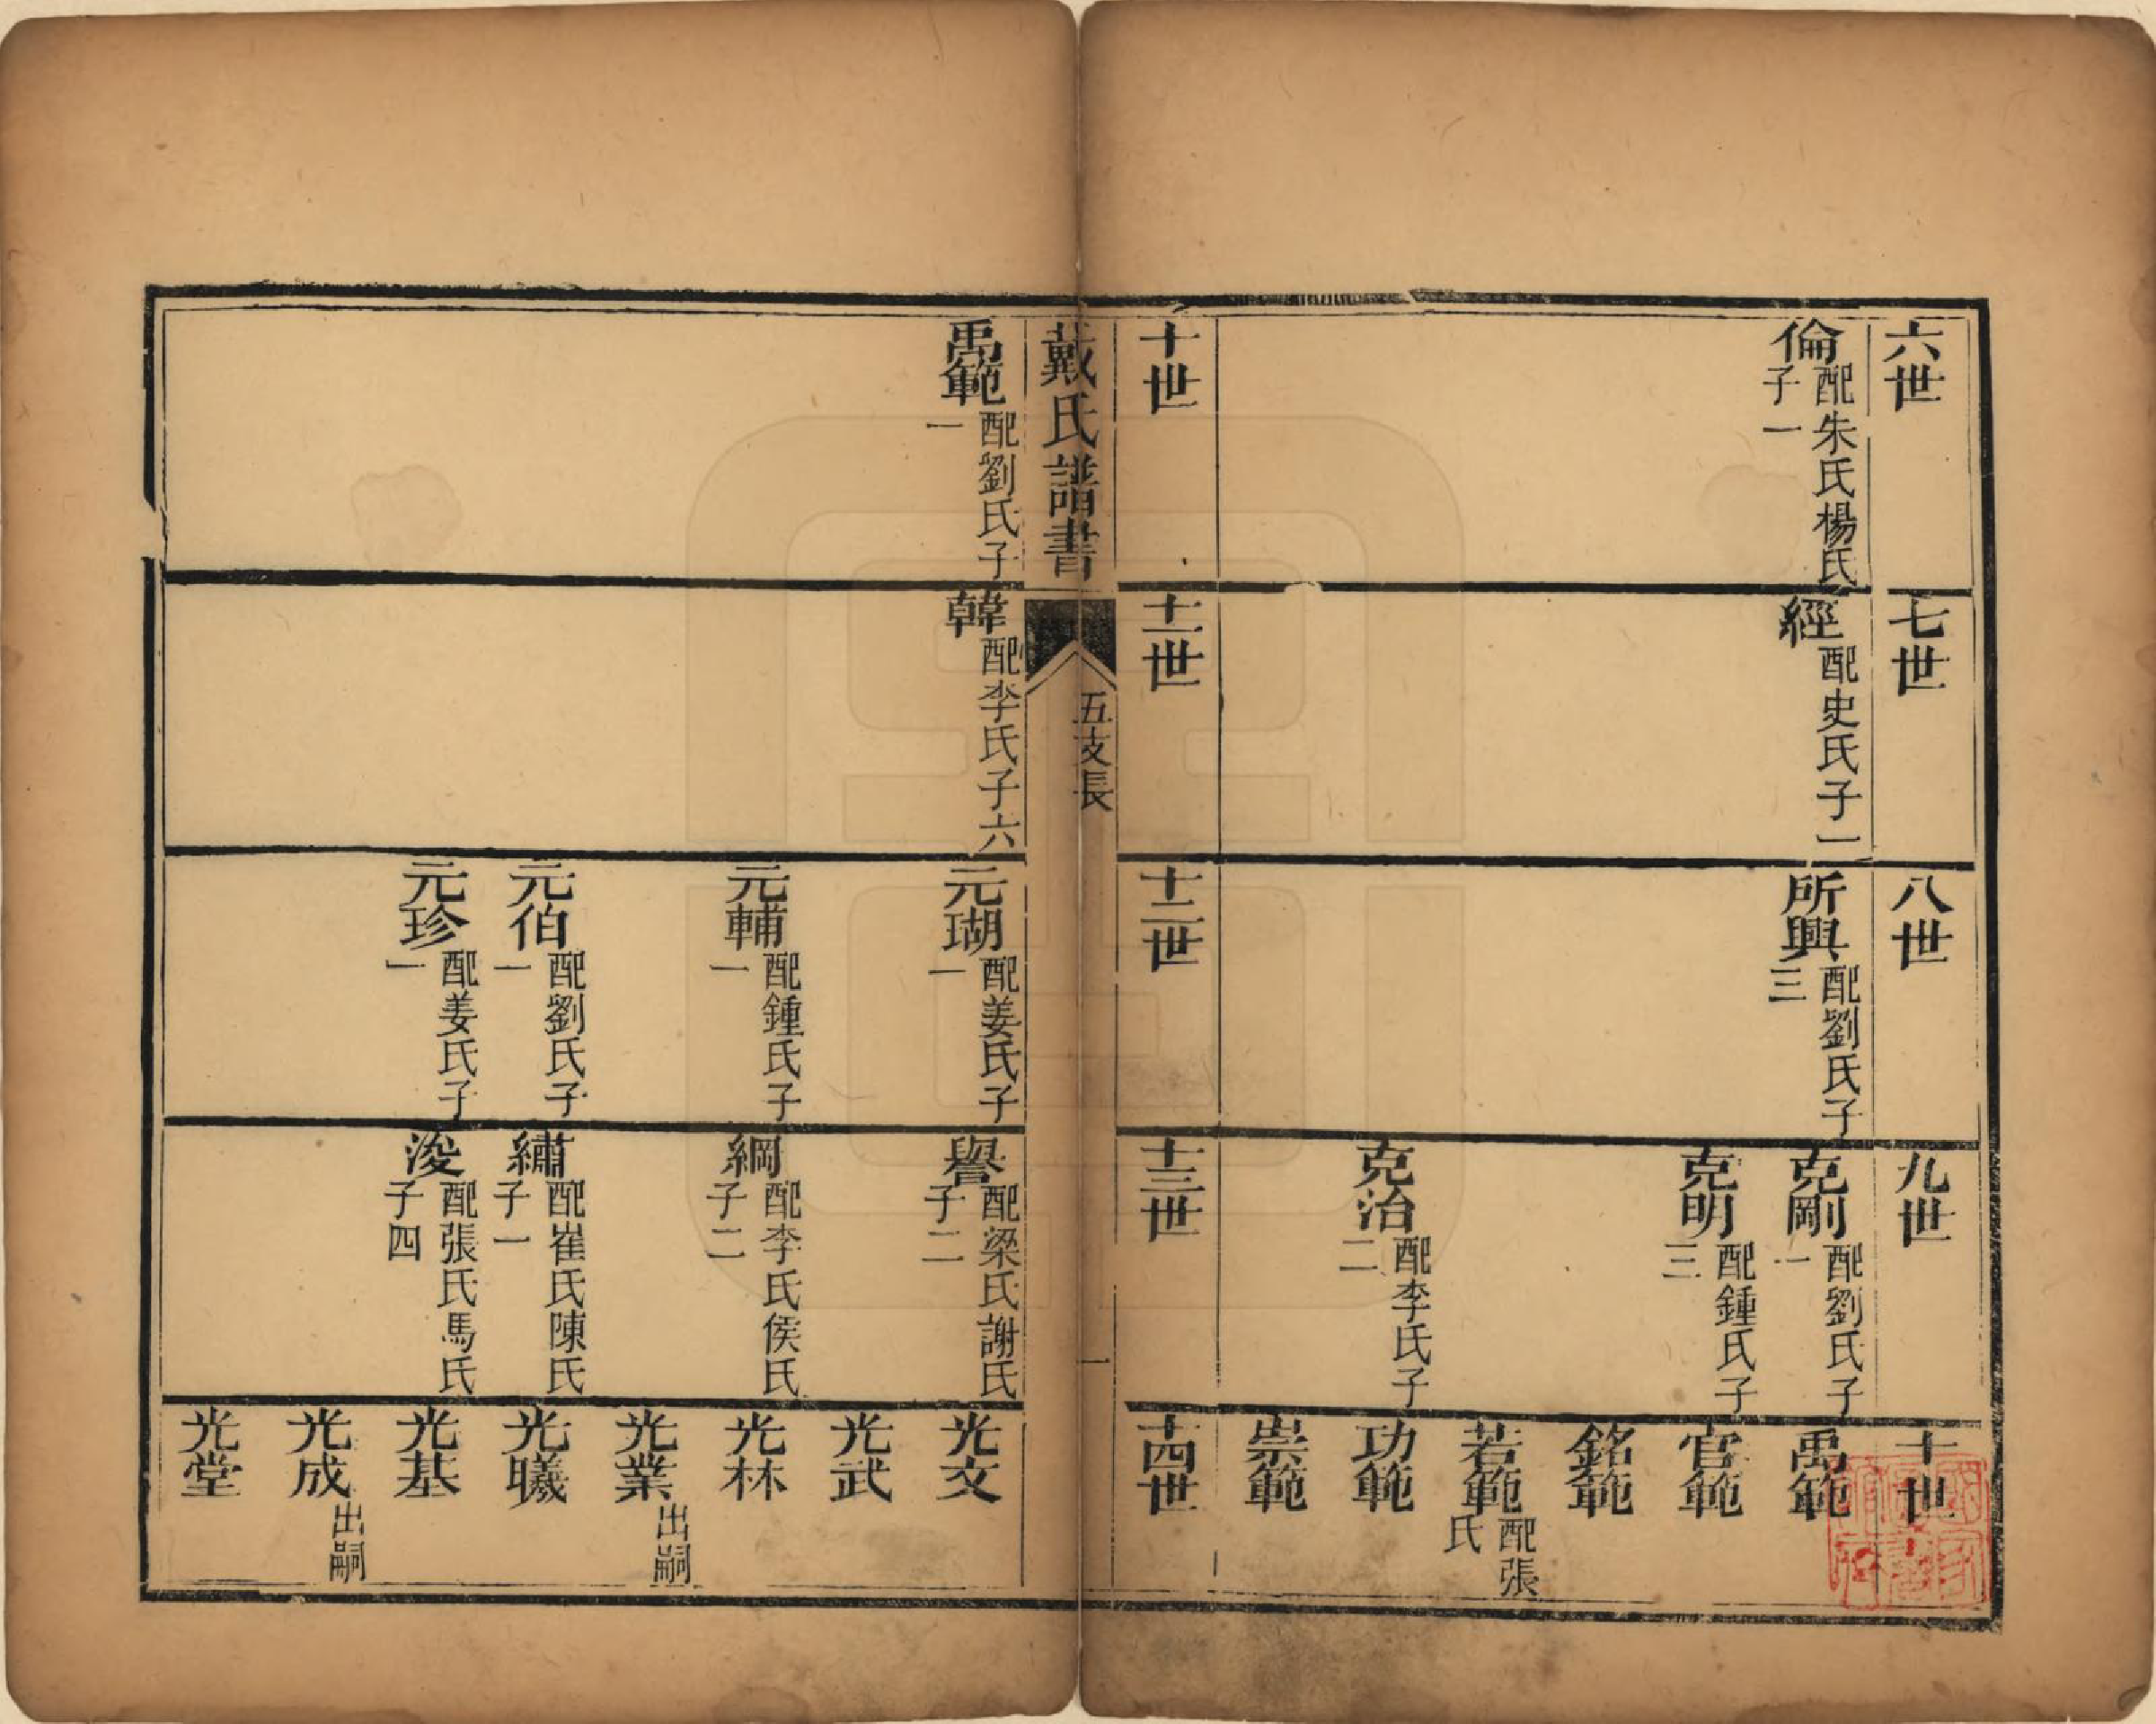 六世
七世
八世
九世
十世
倫 配朱氏楊氏
子一
經 配史氏子一
所興 配劉氏子
三
克剛 配劉氏子
一
禹範
克明 配鍾氏子
三
官範
銘範
若範 配張
氏
克治 配李氏子
二
功範
崇範
十世
十一世
十二世
十三世
十四世
戴氏譜書
五支長
一
禹範 配劉氏子
一
韓 配李氏子六
元瑚 配姜氏子
一
譽 配梁氏謝氏
子二
光文
光武
元輔 配鍾氏子
一
綱 配李氏侯氏
子二
光林
光業 出嗣
元伯 配劉氏子
一
繡 配崔氏陳氏
子一
光曦
元珍 配姜氏子
一
浚 配張氏馬氏
子四
光基
光成 出嗣
光堂